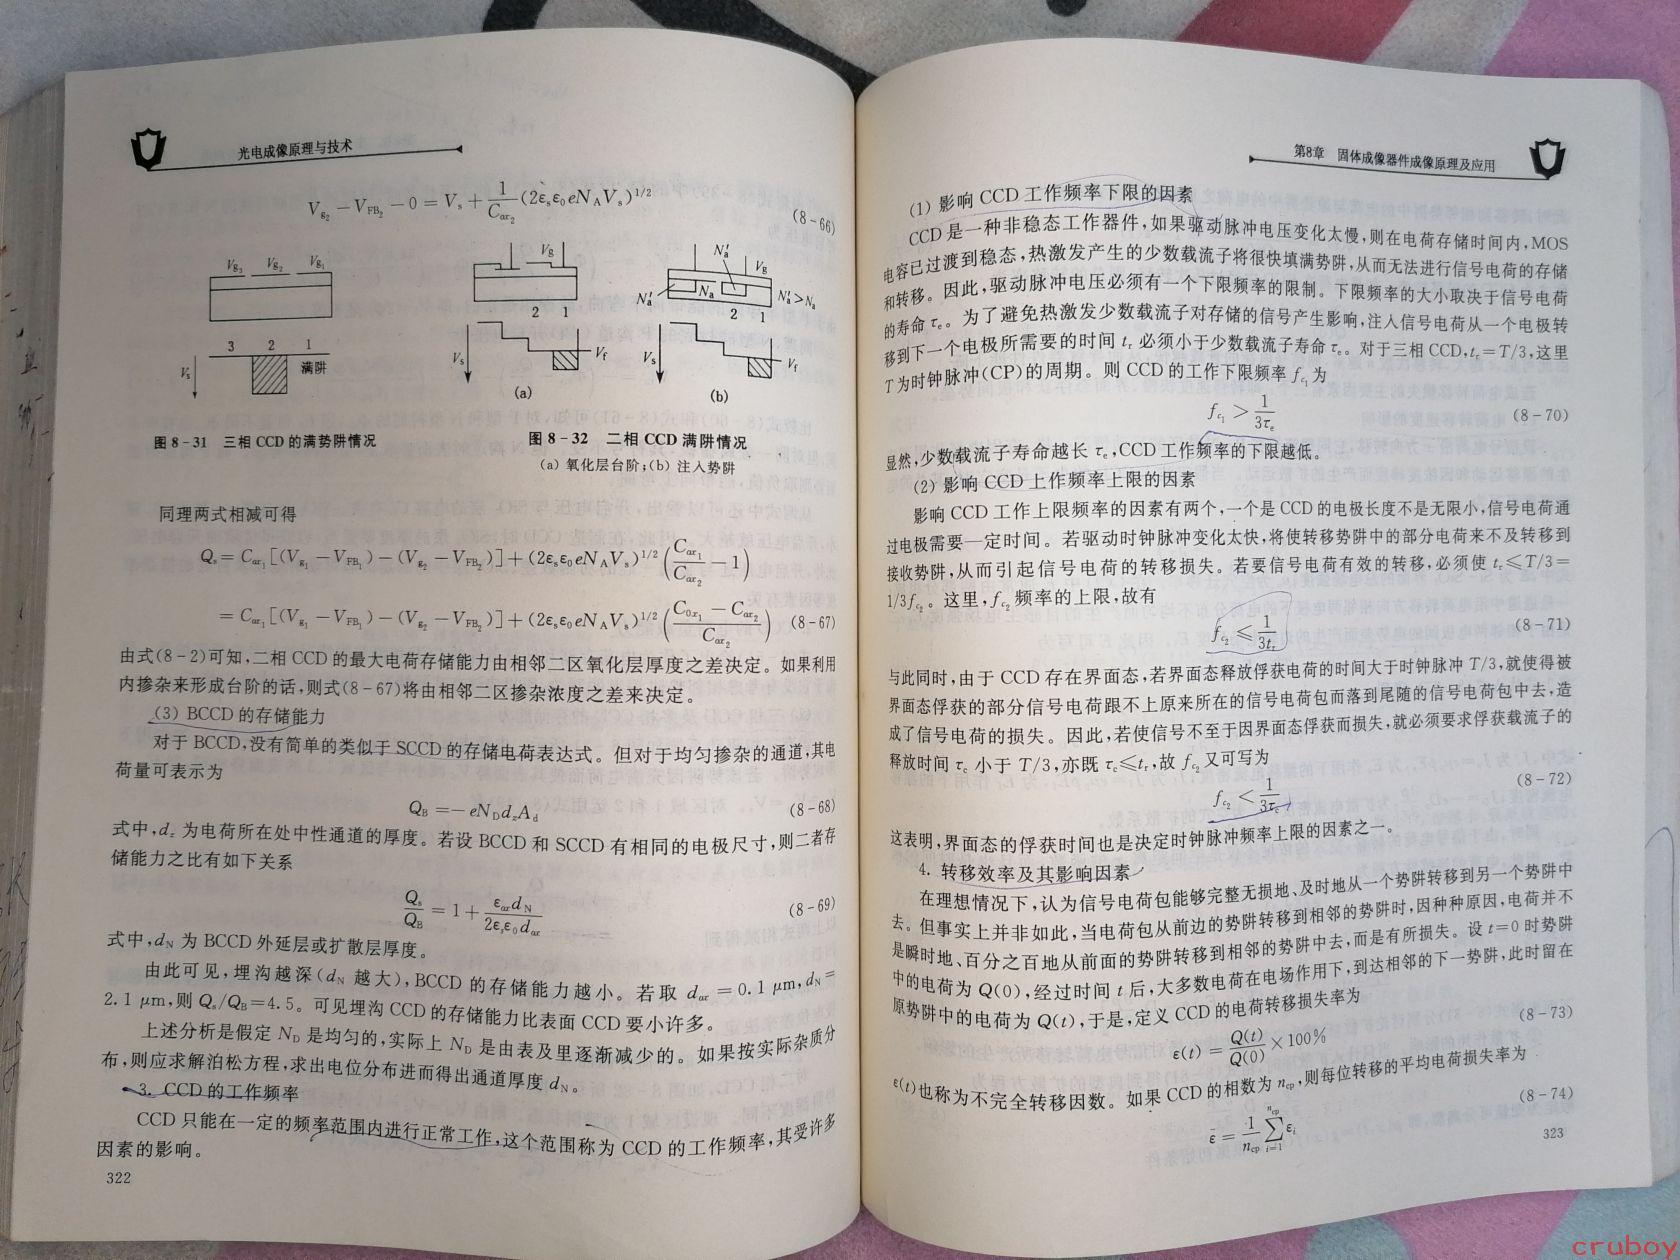 光电成像原理与技术
V_{g_2} - V_{FB_2} - 0 = V_s + \frac{1}{C_{ox_2}}(2ε_sε_0eN_AV_s)^{1/2} (8-66)
V_{g_3} V_{g_2} V_{g_1}
3 2 1
V_s 满阱
V_g
2 1
V_s V_f
(a)
N'_a V_g
N'_a N_a N'_a>N_a
2 1
V_s V_f
(b)
图 8-31 三相 CCD 的满势阱情况
图 8-32 二相 CCD 满阱情况
(a) 氧化层台阶;(b) 注入势阱
同理两式相减可得
Q_s = C_{ox_1}[(V_{g_1} - V_{FB_1}) - (V_{g_2} - V_{FB_2})] + (2ε_sε_0eN_AV_s)^{1/2}(\frac{C_{ox_1}}{C_{ox_2}} - 1)
= C_{ox_1}[(V_{g_1} - V_{FB_1}) - (V_{g_2} - V_{FB_2})] + (2ε_sε_0eN_AV_s)^{1/2}(\frac{C_{0x_1} - C_{ox_2}}{C_{ox_2}}) (8-67)
由式(8-2)可知,二相 CCD 的最大电荷存储能力由相邻二区氧化层厚度之差决定。如果利用
内掺杂来形成台阶的话,则式(8-67)将由相邻二区掺杂浓度之差来决定。
(3) BCCD 的存储能力
对于 BCCD,没有简单的类似于 SCCD 的存储电荷表达式。但对于均匀掺杂的通道,其电
荷量可表示为
Q_B = -eN_Dd_zA_d (8-68)
式中,d_z 为电荷所在处中性通道的厚度。若设 BCCD 和 SCCD 有相同的电极尺寸,则二者存
储能力之比有如下关系
\frac{Q_s}{Q_B} = 1 + \frac{ε_{ox}d_N}{2ε_sε_0d_{ox}} (8-69)
式中,d_N 为 BCCD 外延层或扩散层厚度。
由此可见,埋沟越深(d_N 越大),BCCD 的存储能力越小。若取 d_{ox} = 0.1 μm,d_N =
2.1 μm,则 Q_s/Q_B=4.5。可见埋沟 CCD 的存储能力比表面 CCD 要小许多。
上述分析是假定 N_D 是均匀的,实际上 N_D 是由表及里逐渐减少的。如果按实际杂质分
布,则应求解泊松方程,求出电位分布进而得出通道厚度 d_N。
3. CCD 的工作频率
CCD 只能在一定的频率范围内进行正常工作,这个范围称为 CCD 的工作频率,其受许多
因素的影响。
322
第8章 固体成像器件成像原理及应用
(1) 影响 CCD 工作频率下限的因素
CCD 是一种非稳态工作器件,如果驱动脉冲电压变化太慢,则在电荷存储时间内,MOS
电容已过渡到稳态,热激发产生的少数载流子将很快填满势阱,从而无法进行信号电荷的存储
和转移。因此,驱动脉冲电压必须有一个下限频率的限制。下限频率的大小取决于信号电荷
的寿命 τ_e。为了避免热激发少数载流子对存储的信号产生影响,注入信号电荷从一个电极转
移到下一个电极所需要的时间 t_r 必须小于少数载流子寿命 τ_e。对于三相 CCD,t_r=T/3,这里
T 为时钟脉冲(CP)的周期。则 CCD 的工作下限频率 f_{c_1} 为
f_{c_1} > \frac{1}{3τ_e} (8-70)
显然,少数载流子寿命越长 τ_e,CCD 工作频率的下限越低。
(2) 影响 CCD 上作频率上限的因素
影响 CCD 工作上限频率的因素有两个,一个是 CCD 的电极长度不是无限小,信号电荷通
过电极需要一定时间。若驱动时钟脉冲变化太快,将使转移势阱中的部分电荷来不及转移到
接收势阱,从而引起信号电荷的转移损失。若要信号电荷有效的转移,必须使 t_r≤T/3=
1/3f_{c_2}。这里,f_{c_2} 频率的上限,故有
f_{c_2} ≤ \frac{1}{3t_r} (8-71)
与此同时,由于 CCD 存在界面态,若界面态释放俘获电荷的时间大于时钟脉冲 T/3,就使得被
界面态俘获的部分信号电荷跟不上原来所在的信号电荷包而落到尾随的信号电荷包中去,造
成了信号电荷的损失。因此,若使信号不至于因界面态俘获而损失,就必须要求俘获载流子的
释放时间 τ_c 小于 T/3,亦既 τ_c≤t_r,故 f_{c_2} 又可写为
f_{c_2} < \frac{1}{3τ_c} (8-72)
这表明,界面态的俘获时间也是决定时钟脉冲频率上限的因素之一。
4. 转移效率及其影响因素
在理想情况下,认为信号电荷包能够完整无损地、及时地从一个势阱转移到另一个势阱中
去。但事实上并非如此,当电荷包从前边的势阱转移到相邻的势阱时,因种种原因,电荷并不
是瞬时地、百分之百地从前面的势阱转移到相邻的势阱中去,而是有所损失。设 t=0 时势阱
中的电荷为 Q(0),经过时间 t 后,大多数电荷在电场作用下,到达相邻的下一势阱,此时留在
原势阱中的电荷为 Q(t),于是,定义 CCD 的电荷转移损失率为
ε(t) = \frac{Q(t)}{Q(0)} × 100% (8-73)
ε(t)也称为不完全转移因数。如果 CCD 的相数为 n_{cp},则每位转移的平均电荷损失率为
\bar{ε} = \frac{1}{n_{cp}}\sum_{i=1}^{n_{cp}}ε_i (8-74)
323
cruboy